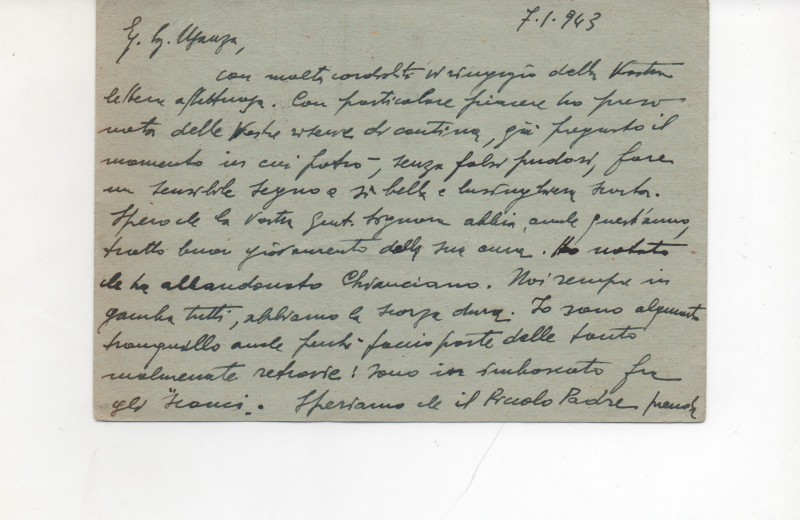 7.1.943
Eg. Sig. Manza,
con molta cordialità Vi ringrazio della Vostra
lettera affettuosa. Con particolare piacere ho preso
nota delle Vostre riserve di cantina, già pregusto il
momento in cui potrò, senza falsi pudori, fare
un sensibile segno a sì bella e lusinghiera scorta.
Spero che la Vostra Gent. Signora abbia, anche quest'anno,
tratto buon giovamento dalla sua cura. Ho notato
che ha abbandonato Chianciano. Noi sempre in
gamba tutti, abbiamo la scorza dura. Io sono alquanto
tranquillo anche perché faccio parte delle tanto
malmenate retrovie! Sono un imboscato fra
gli "         ". Speriamo che il Piccolo Padre prenda